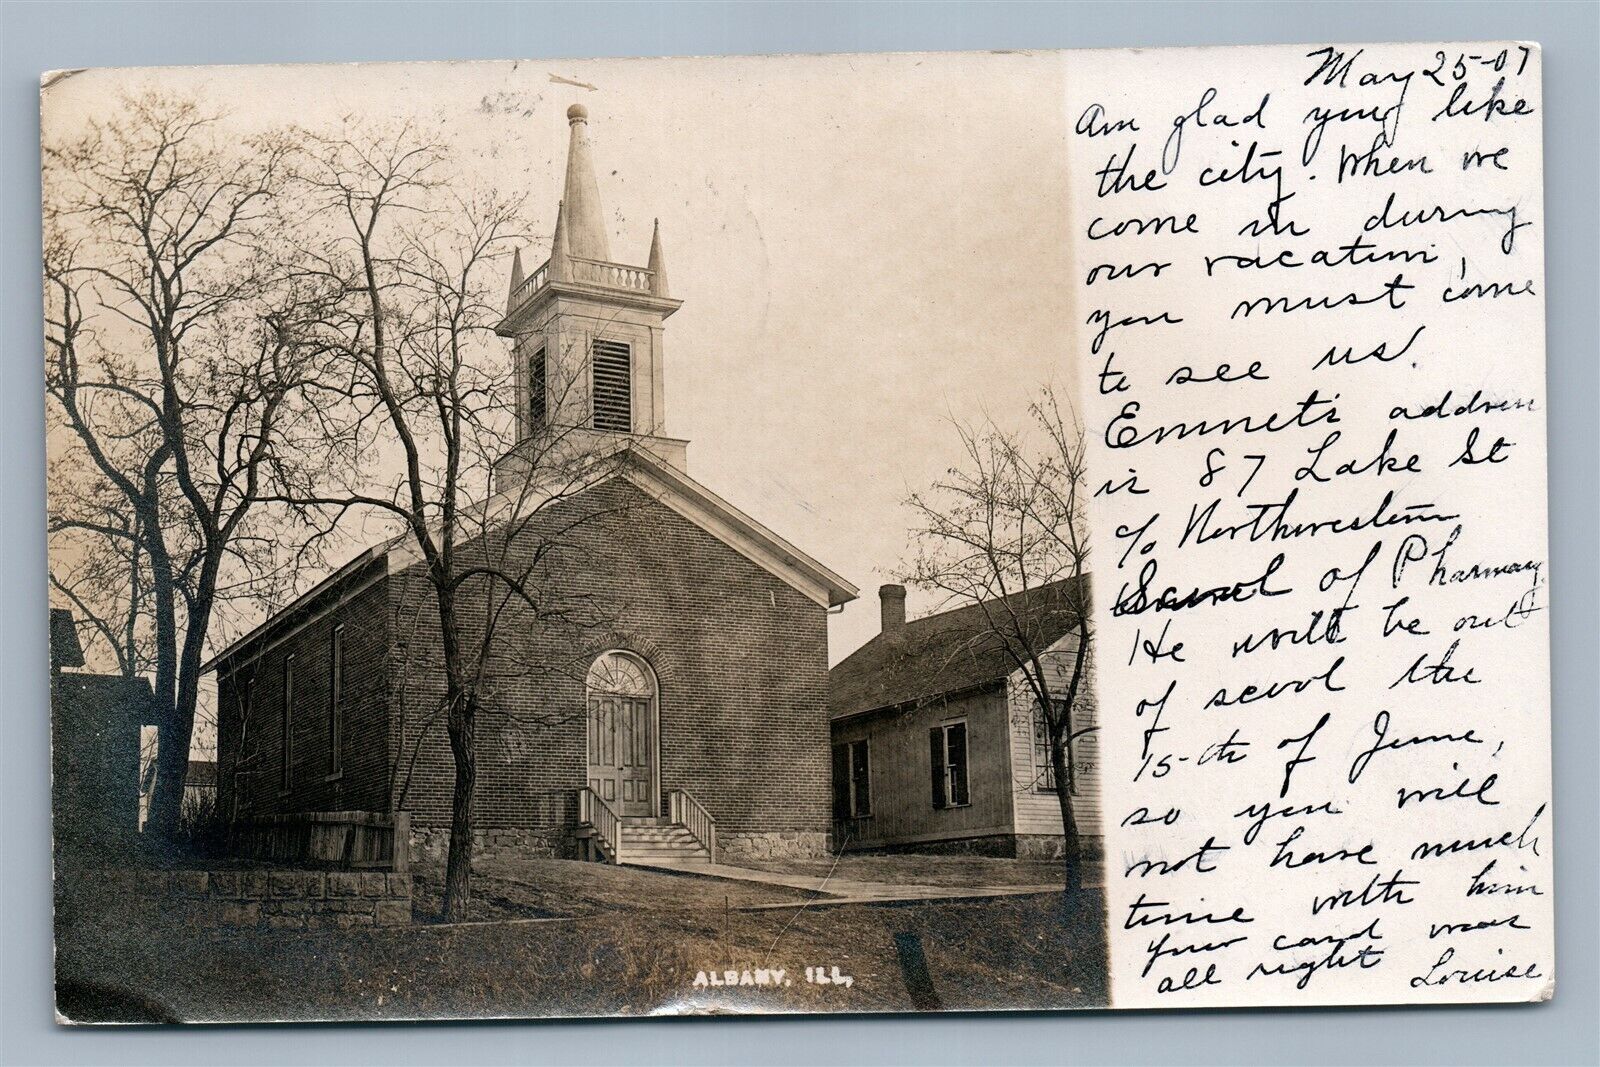 May 25-07
Am glad you like
the city. When we
come in during
our vacation,
you must come
to see us.
Emmets address
is 87 Lake St
c/o Northwestern
School of Pharmacy.
He will be out
of scool the
15-th of June,
so you will
not have much
time with him
your card was
all right Louise
ALBANY, ILL,